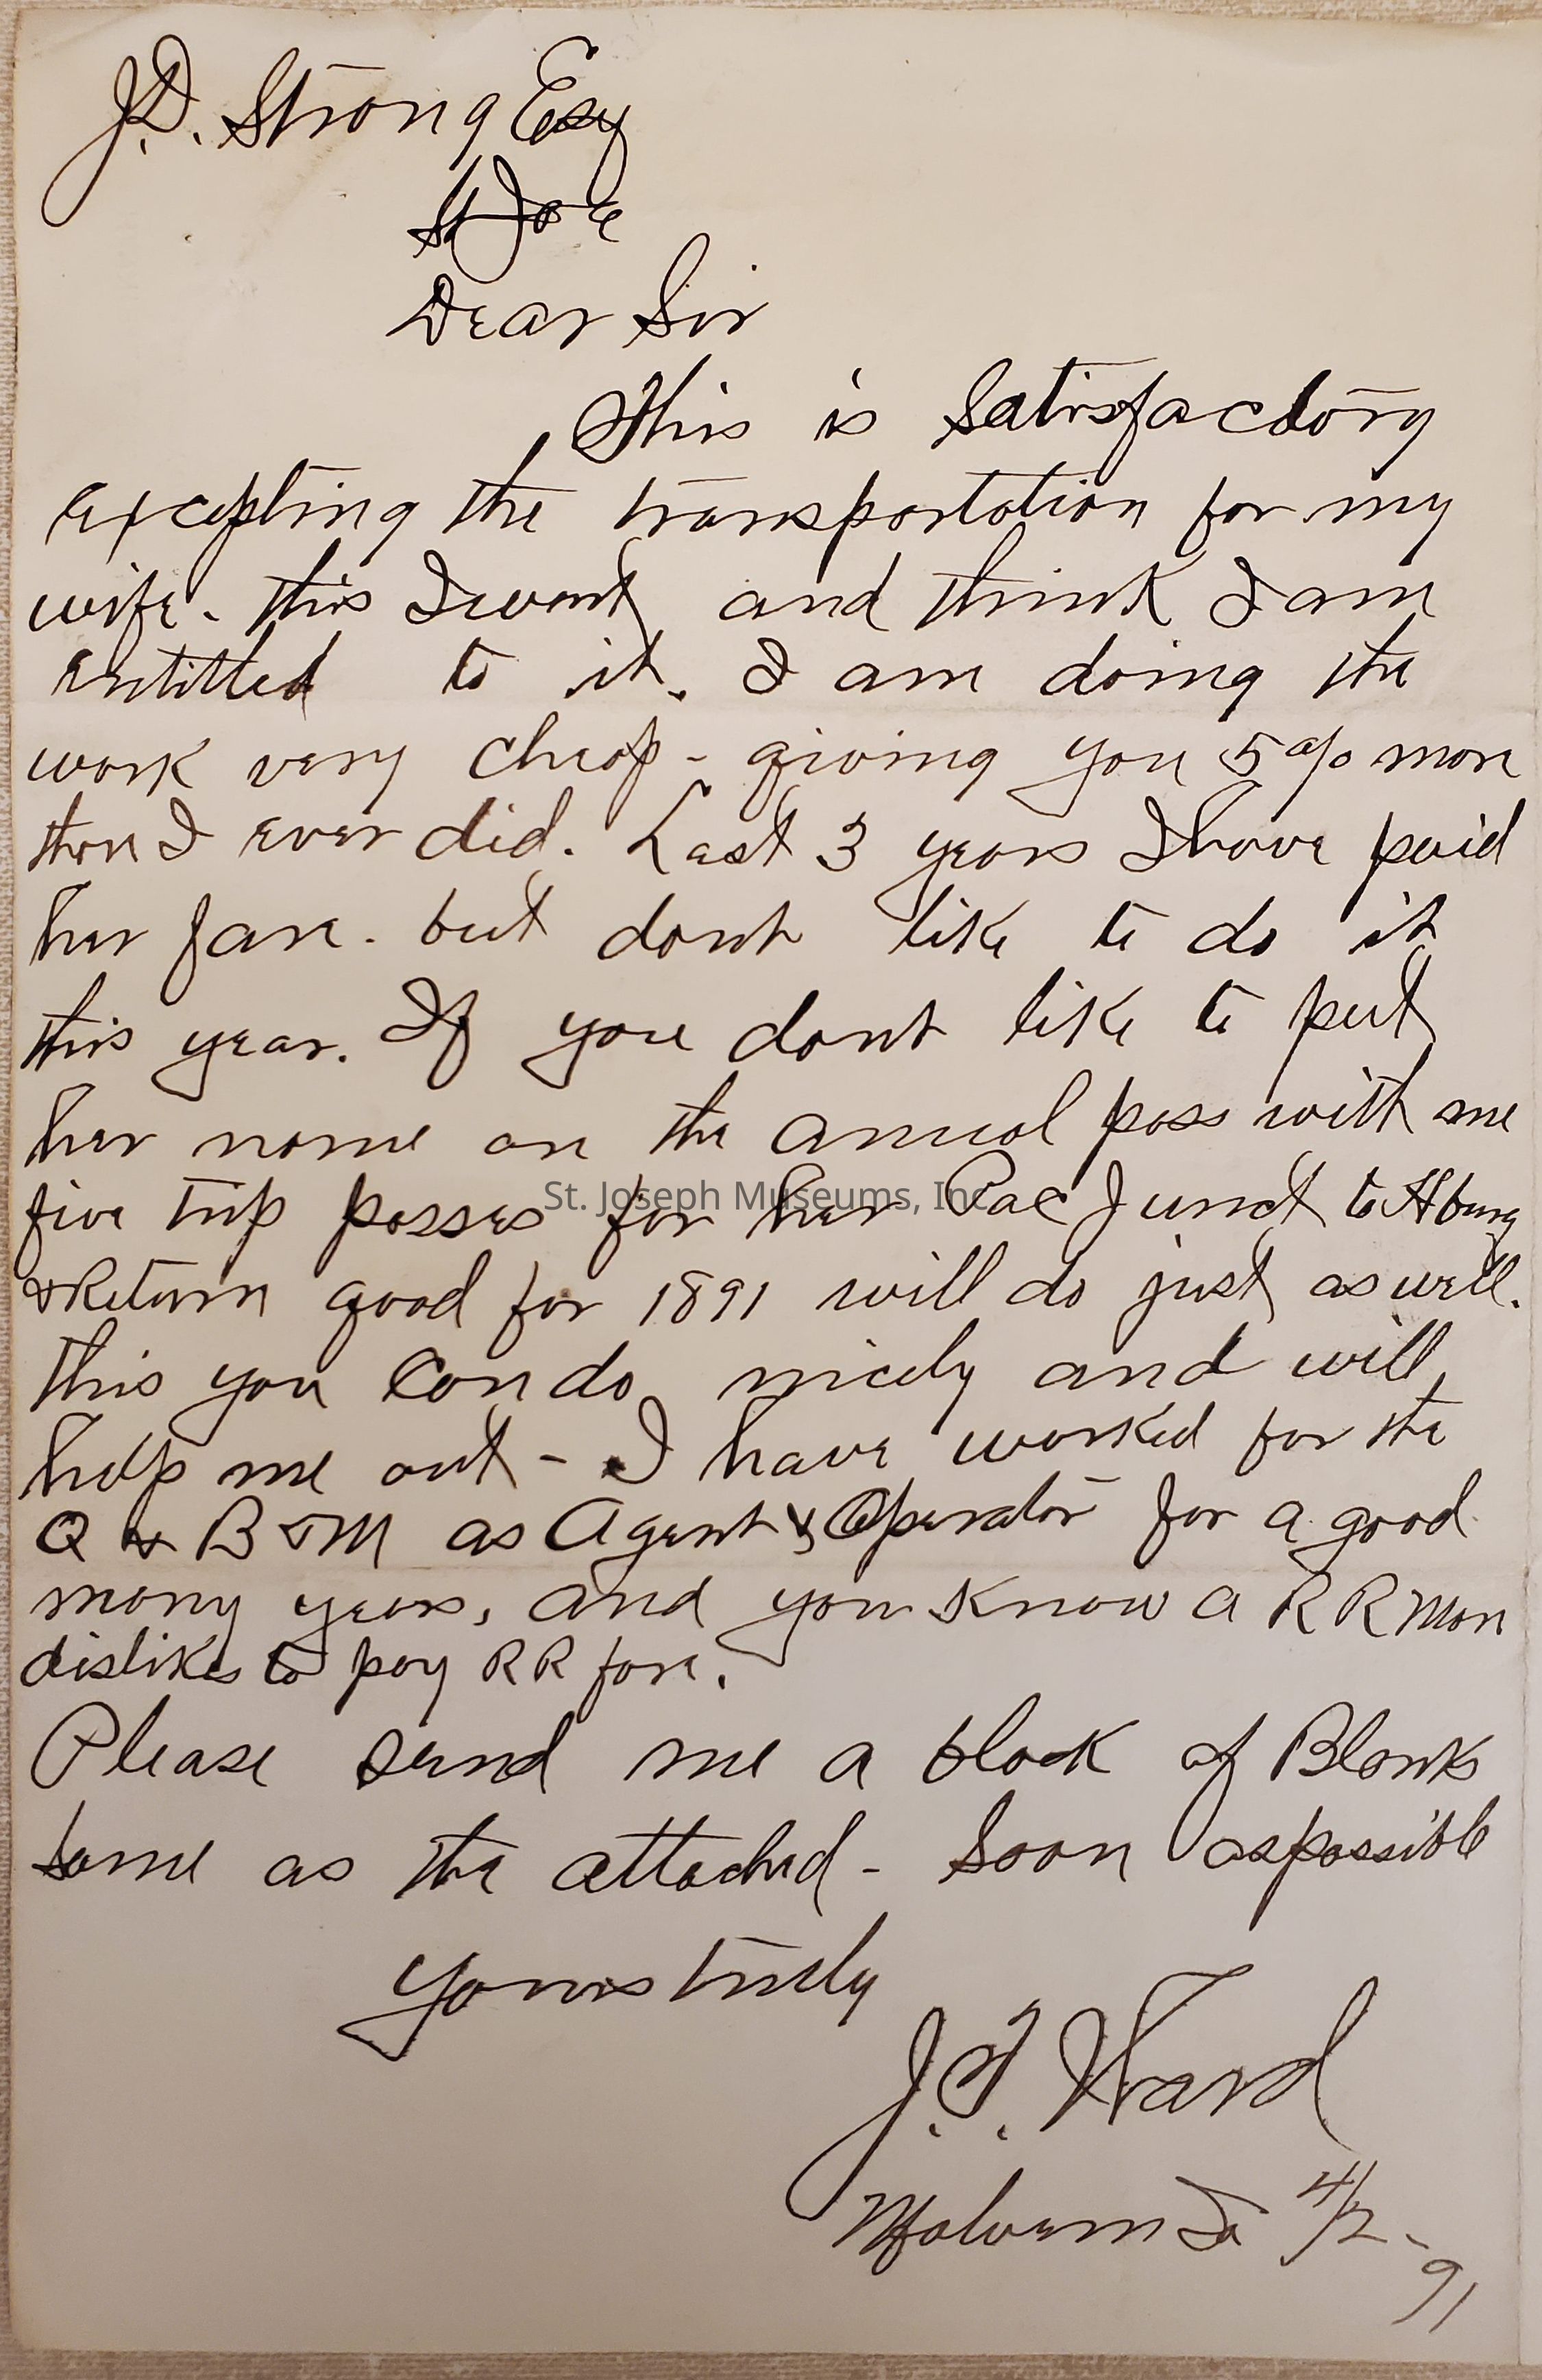 J.D. Strong Esq
St Joe
Dear Sir
This is Satisfactory
excepting the transportation for my
wife. this I want and think I am
entitled to it. I am doing the
work very cheap - giving you 5 % more
than I ever did. Last 3 years I have paid
her fare. but dont like to do it
this year. If you dont like to put
her name on the annual pass with me
five trip passes for her Pac Junct to Hburg
St. Joseph Museums, Inc
& Return good for 1891 will do just as well.
This you can do nicely and will
help me out - I have worked for the
Q & B & M as Agent & Operator for a good
many years, and you know a R R Man
dislikes to pay R R fare.
Please send me a block of Blanks
same as the attached - Soon as possible
Yours truly
Ward
Malvern Ia 4/2-91